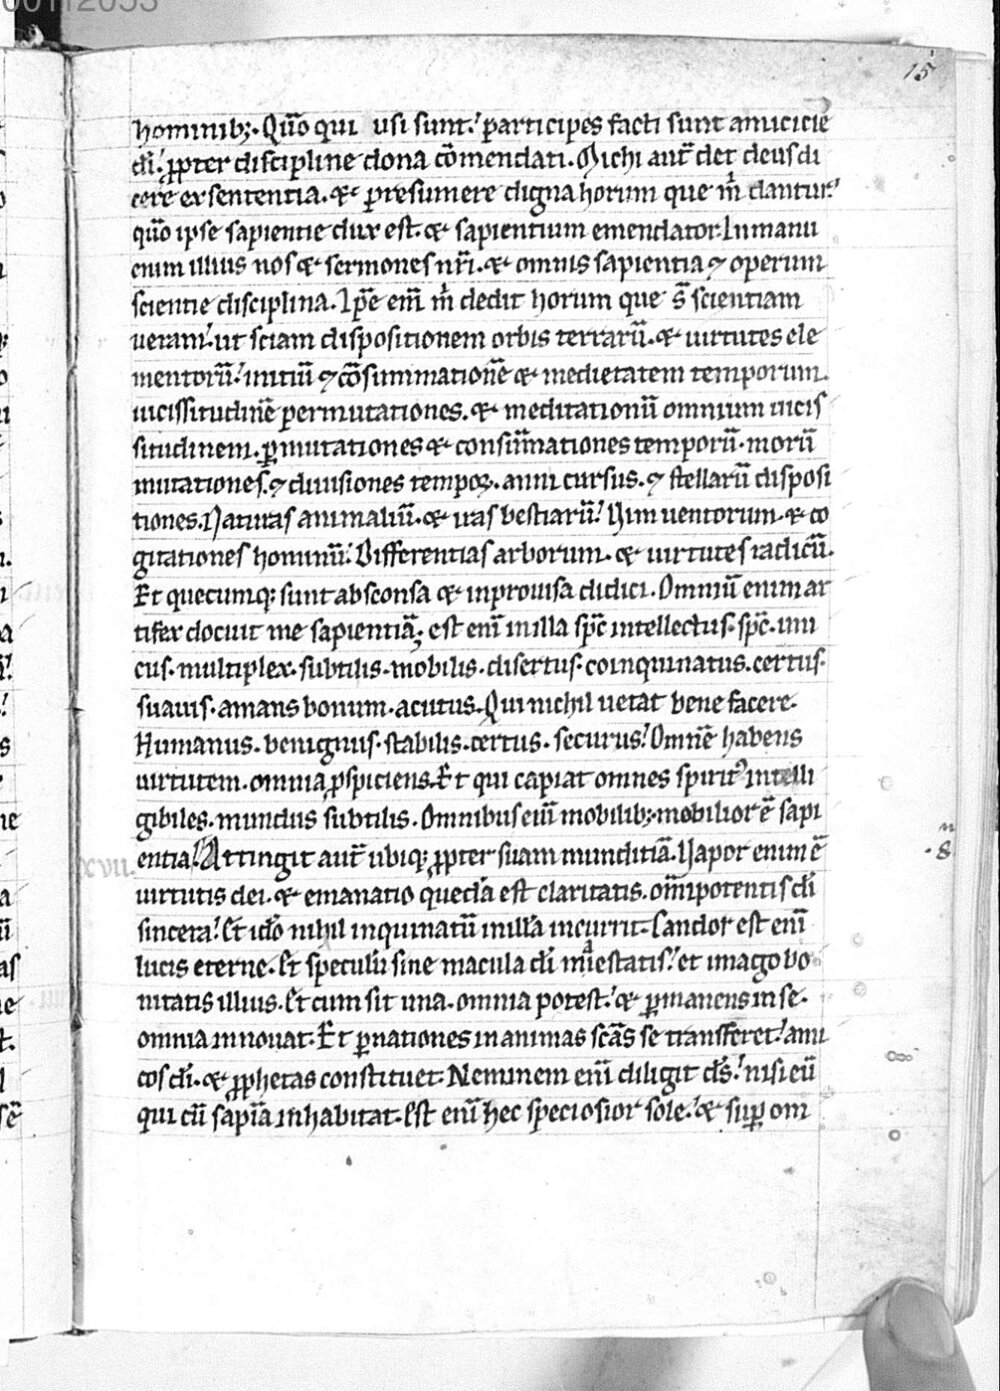 00112053
15
hominib;. Quō qui usi sunt. participes facti sunt amicicie
dī. ꝓpter discipline dona cōmendati. Michi aut̄ det deus di
cere ex sententia. & presumere digna horum que m̄ dantur.
quō ipse sapientie dux est. & sapientium emendator. In manu
enim illius nos & sermones nr̄i. & omnis sapientia ⁊ operum
scientie disciplina. Ip̄e em̄ m̄ dedit horum que s̄ scientiam
ueram. ut sciam dispositionem orbis terrarū. & uirtutes ele
mentorū. initiū ⁊ cōsummationē & medietatem temporum.
uicissitudinē permutationes. & meditationū omnium uicis
situdinem. ꝑmutationes & consūmationes temporū. morū
mutationes. ⁊ diuisiones tempoꝝ. anni cursus. ⁊ stellarū disposi
tiones. Naturas animaliū. & iras bestiarū. Uim uentorum. & co
gitationes hominū. Differentias arborum. & uirtutes radicū.
Et quecumq; sunt absconsa & inprouisa didici. Omniū enim ar
tifex docuit me sapientiā. est enī in illa sp̄c intellectus. sp̄c. uni
cus. multiplex. subtilis. mobilis. disertus. coinquinatus. certus.
suauis. amans bonum. acutus. Qui nichil uetat bene facere.
Humanus. benignus. stabilis. certus. securus. Omnē habens
uirtutem. omnia ꝓspiciens. Et qui capiat omnes spirit᾽ intelli
gibiles. mundus subtilis. Omnibus enī mobilib;. mobilior ē sapi
entia. Attingit aut̄ ubiq; ꝓpter suam munditiā. Uapor enim ē
xvii.
uirtutis dei. & emanatio quedā est claritatis. om̄ipotentis dī
sincera. Et idō nihil inquinatū in illā incurrit. Candor est enī
lucis eterne. Et speculū sine macula dī maiestatis. et imago bo
nitatis illius. Et cum sit una. omnia potest. & ꝑmanens in se.
omnia innouat. Et ꝑ nationes in animas sc̄as se transferet. ami
cos dī. & ꝓphetas constituet. Neminem enī diligit ds̄. nisi eū
qui cū sapīa inhabitat. Est enī hec speciosior sole. & suꝑ om